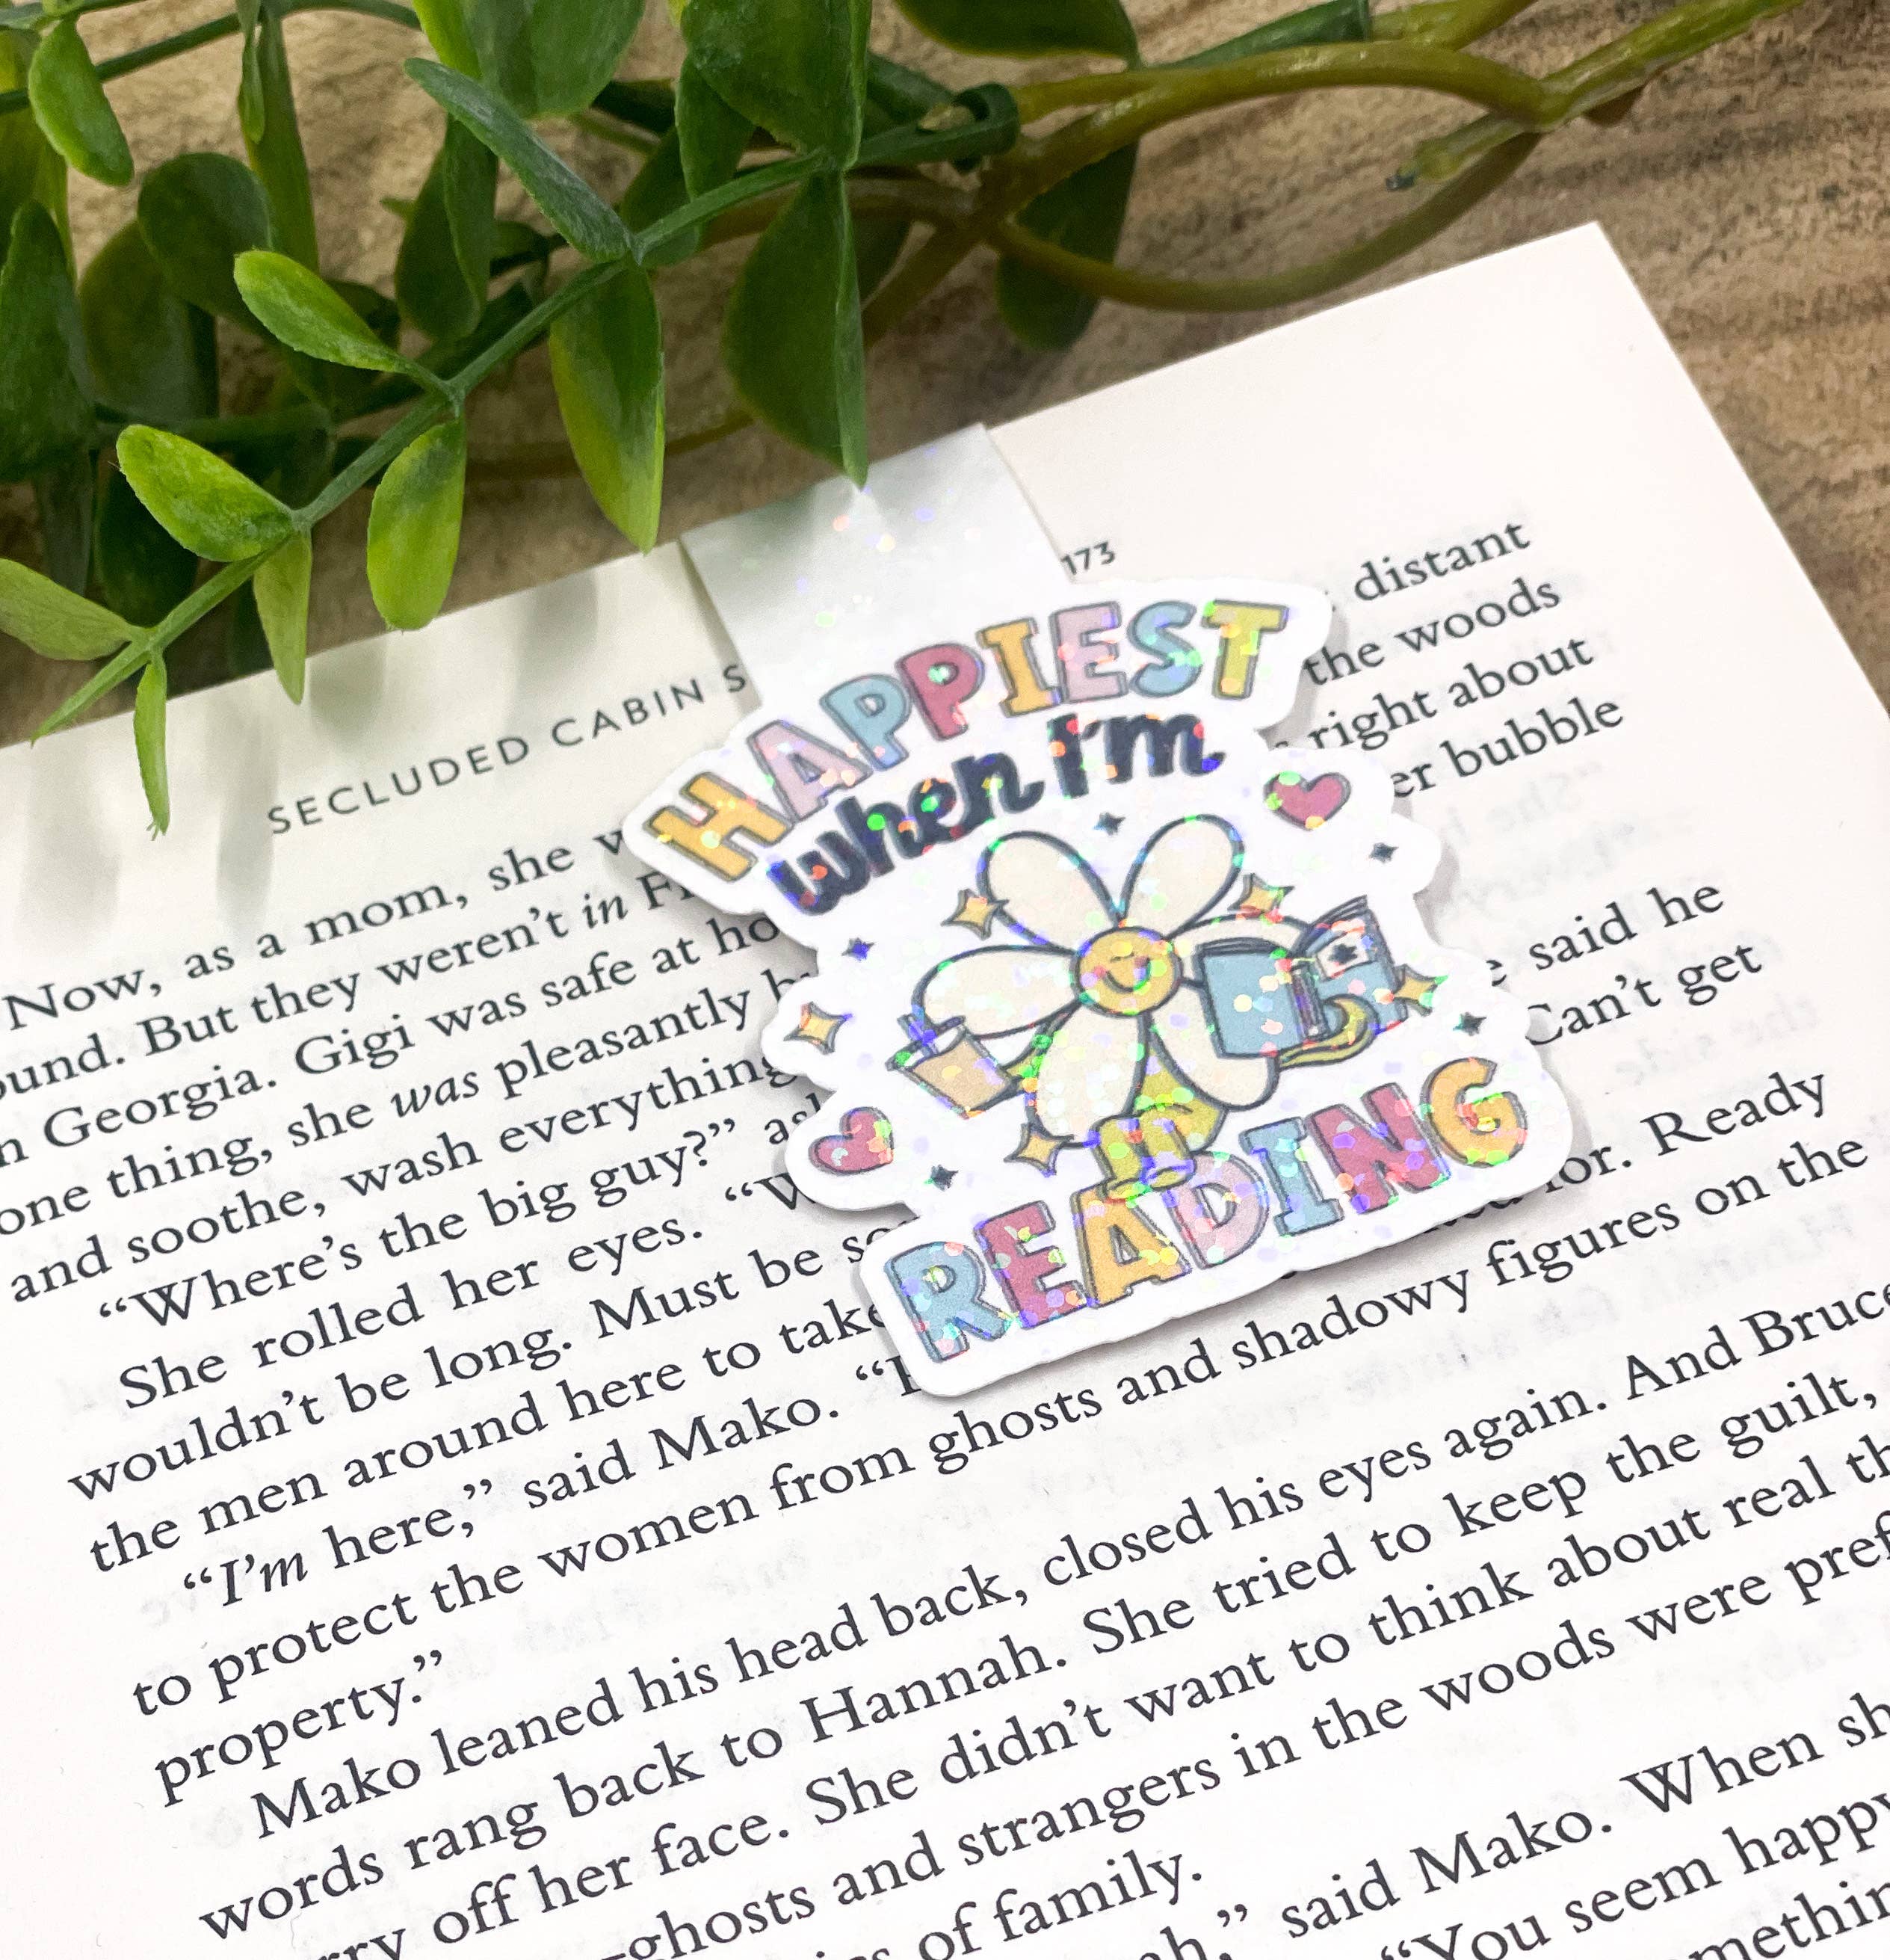 173
SECLUDED CABIN S
HAPPIEST
when I'm
READING
distant
the woods
right about
bubble
Now, as a mom, she
But they weren't in
Georgia. Gigi was safe at
one thing, she was pleasantly
and soothe, wash everything
"Where's the big guy?"
She rolled her eyes.
said he
Can't get
wouldn't be long. Must be
the men around here to take
for. Ready
"I'm here," said Mako.
to protect the women from ghosts and shadowy figures on the
property."
Mako leaned his head back, closed his eyes again. And Bruce
words rang back to Hannah. She tried to keep the guilt,
off her face. She didn't want to think about real
ghosts and strangers in the woods were
of family.
said Mako. When
"You seem happy